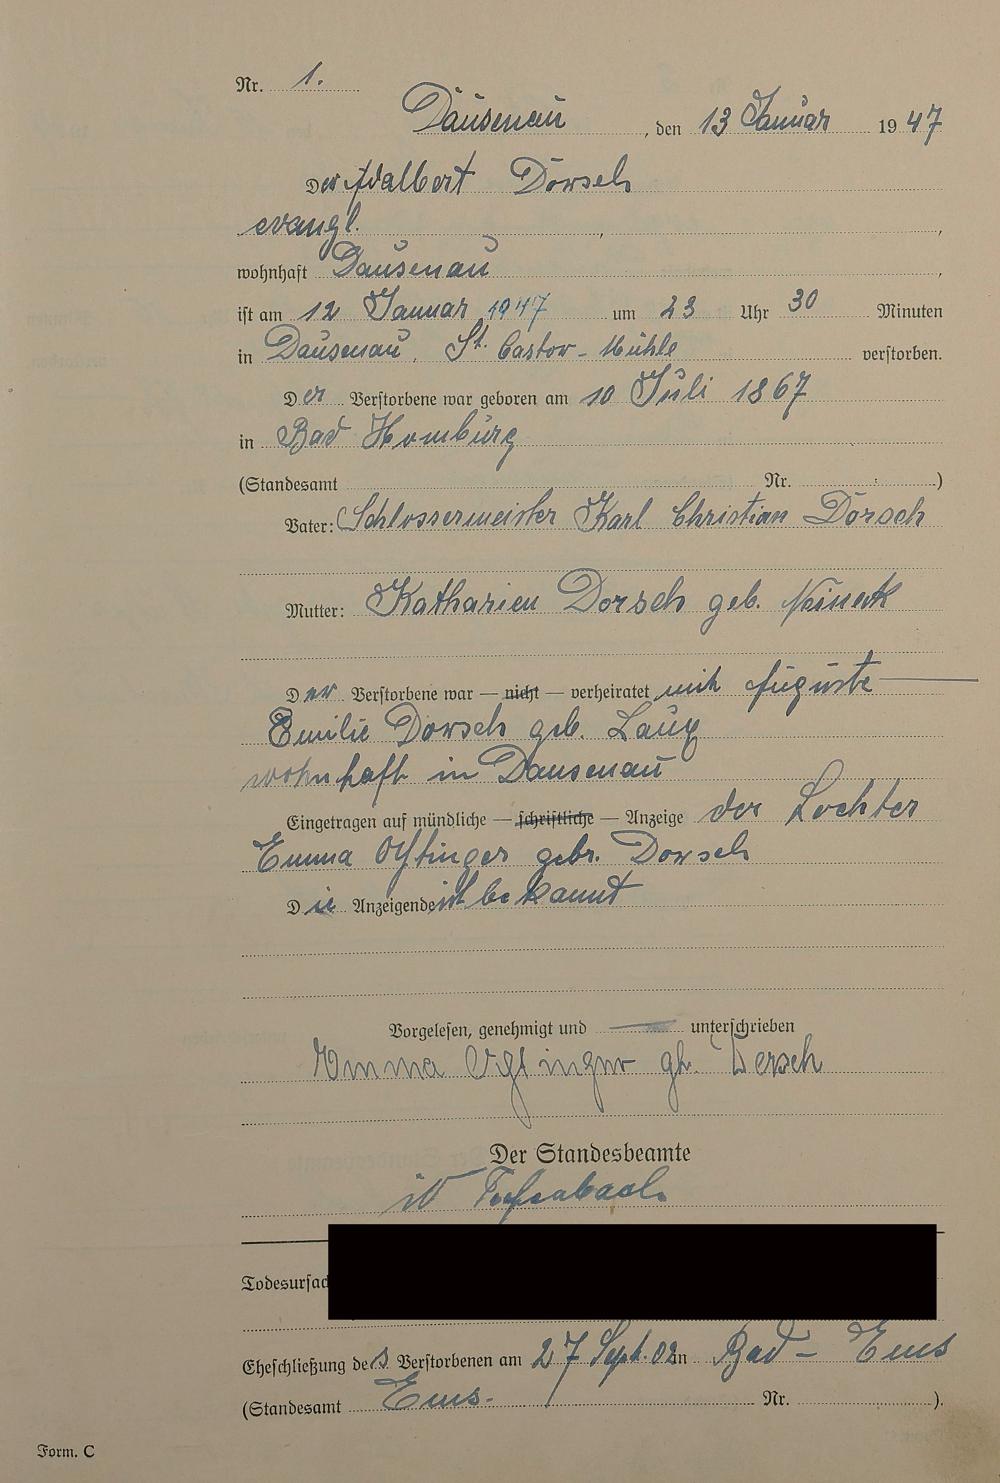 Nr. 1.
Dausenau, den 13 Januar 1947
Der Adalbert Dörsch
evangl. , ,
wohnhaft Dausenau ,
ist am 12 Januar 1947 um 23 Uhr 30 Minuten
in Dausenau, St. Castor-Mühle verstorben.
Der Verstorbene war geboren am 10 Juli 1867
in Bad Homburg
(Standesamt Nr. )
Vater: Schlossermeister Karl Christian Dörsch
Mutter: Katharien Dorsch geb.
Der Verstorbene war — nicht — verheiratet mit Auguste
Emilie Dorsch geb.
wohnhaft in Dausenau
Eingetragen auf mündliche — schriftliche — Anzeige der Tochter
Emma Oftinger gebr. Dorsch
Die Anzeigende ist bekannt
Vorgelesen, genehmigt und unterschrieben
Emma Oftinger Dersch
Der Standesbeamte
iV
Todesursac
Eheschließung des Verstorbenen am 27 Sept. 02 in Bad-Ems
(Standesamt Ems. Nr. ).
Form. C